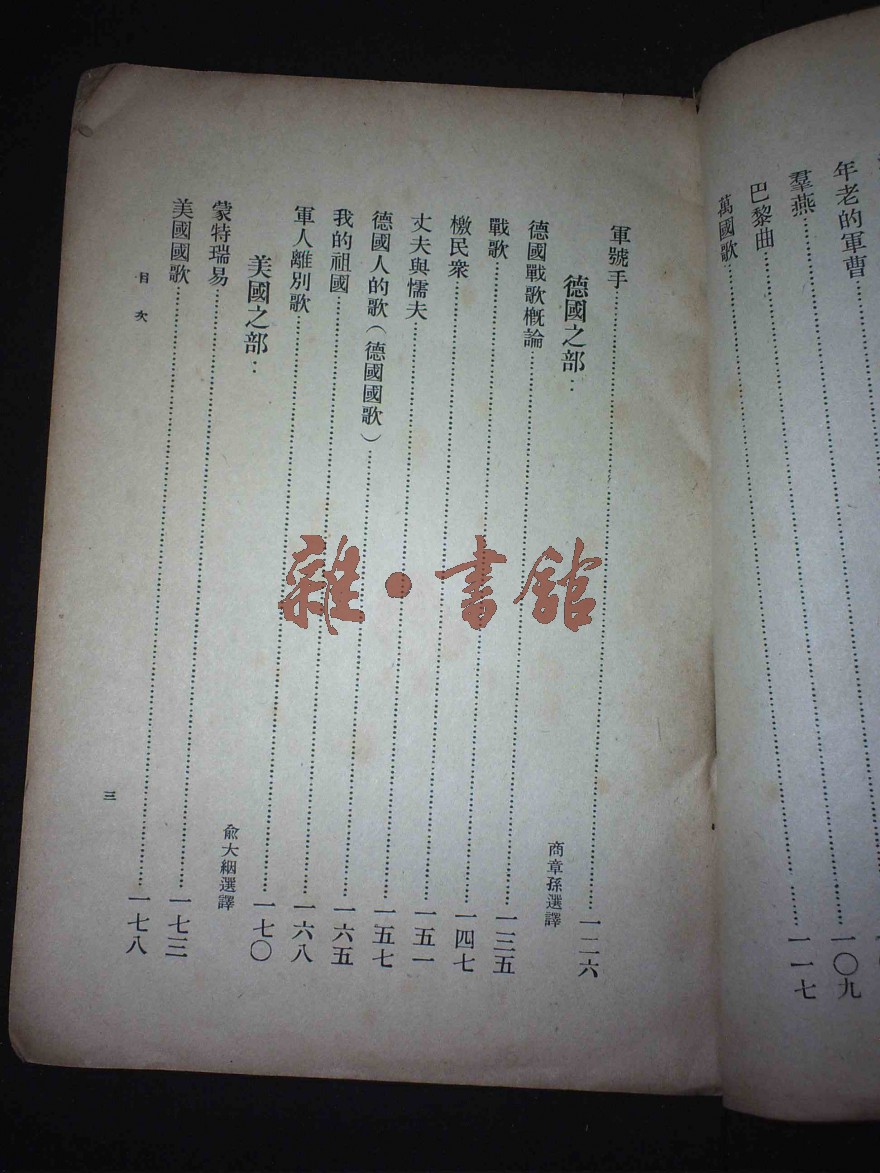 年老的軍曹
羣燕……一〇九
巴黎曲……一一七
萬國歌……
軍號手……一二六
德國之部： 商章孫選譯
德國戰歌概論……一三五
戰歌……一四七
檄民衆……一五一
丈夫與懦夫……一五七
德國人的歌（德國國歌）……一六五
我的祖國……一六八
軍人離別歌……一七〇
美國之部： 俞大絪選譯
蒙特瑞易……一七三
美國國歌……一七八
目次
三
雜·書館